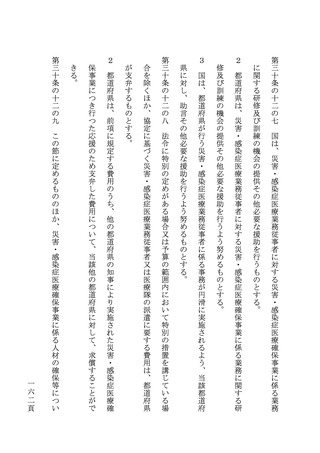 第三十条の十二の七　国は、災害・感染症医療業務従事者に対する災害・感染症医療確保事業に係る業務
に関する研修及び訓練の機会の提供その他必要な援助を行うものとする。
２　都道府県は、災害・感染症医療業務従事者に対する災害・感染症医療確保事業に係る業務に関する研
修及び訓練の機会の提供その他必要な援助を行うよう努めるものとする。
３　国は、都道府県が行う災害・感染症医療業務従事者に係る事務が円滑に実施されるよう、当該都道府
県に対し、助言その他必要な援助を行うよう努めるものとする。
第三十条の十二の八　法令に特別の定めがある場合又は予算の範囲内において特別の措置を講じている場
合を除くほか、協定に基づく災害・感染症医療業務従事者又は医療隊の派遣に要する費用は、都道府県
が支弁するものとする。
２　都道府県は、前項に規定する費用のうち、他の都道府県の知事により実施された災害・感染症医療確
保事業につき行つた応援のため支弁した費用について、当該他の都道府県に対して、求償することがで
きる。
第三十条の十二の九　この節に定めるもののほか、災害・感染症医療確保事業に係る人材の確保等につい
一六二頁